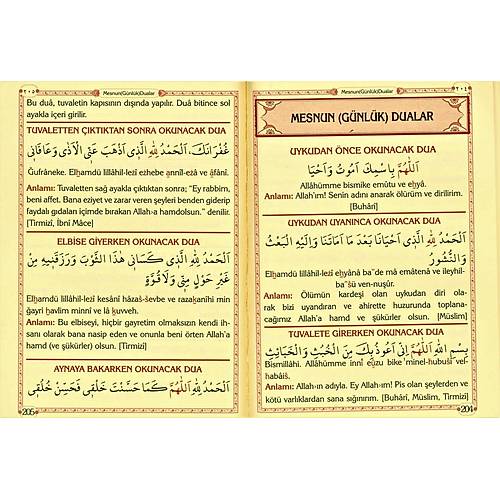 Mesnun(Günlük)Dualar
٢٠٤
MESNUN (GÜNLÜK) DUALAR
UYKUDAN ÖNCE OKUNACAK DUA
اَللّٰهُمَّ بِاسْمِكَ اَمُوتُ وَاَحْيَا
Allâhümme bismike emûtu ve ehyâ.
Anlamı: Allah'ım! Senin adını anarak ölürüm ve dirilirim.
[Buhârî]
UYKUDAN UYANINCA OKUNACAK DUA
اَلْحَمْدُ لِلّٰهِ الَّذِى اَحْيَانَا بَعْدَ مَا اَمَاتَنَا وَاِلَيْهِ الْبَعْثُ
وَالنُّشُورُ
Elhamdü lillâhil-lezî ehyânâ ba"de mâ emâtenâ ve ileyhil-
ba"sü ven-nuşûr.
Anlamı: Ölümün kardeşi olan uykudan diri ola-
rak bizi uyandıran ve ahirette huzurunda toplana-
cağımız Allah'a hamd ve şükürler olsun. [Müslim]
TUVALETE GİRERKEN OKUNACAK DUA
بِسْمِ اللّٰهِ اَللّٰهُمَّ اِنِّى اَعُوذُ بِكَ مِنَ الْخُبُثِ وَالْخَبَائِثِ
Bismillâhi. Allâhümme innî eûzu bike 'minel-hubusi vel-
habâis.
Anlamı: Allah-ın adıyla. Ey Allah-ım! Pis olan şeylerden ve
kötü varlıklardan sana sığınırım. [Buhârî, Müslim, Tirmizi]
204
٢٠٥
Mesnun(Günlük)Dualar
Bu duâ, tuvaletin kapısının dışında yapılır. Duâ bitince sol
ayakla içeri girilir.
TUVALETTEN ÇIKTIKTAN SONRA OKUNACAK DUA
غُفْرَانَكَ، اَلْحَمْدُ لِلّٰهِ الَّذِى اَذْهَبَ عَنِّى الْاَذٰى وَعَافَانِى
Ğufrâneke. Elhamdü lillâhil-lezî ezhebe annîl-ezâ ve âfânî.
Anlamı: Tuvaletten sağ ayakla çıktıktan sonra; "Ey rabbim,
beni affet. Bana eziyet ve zarar veren şeyleri benden giderip
faydalı gıdaları içimde bırakan Allah-a hamdolsun." denilir.
[Tirmizî, İbni Mâce]
ELBİSE GİYERKEN OKUNACAK DUA
اَلْحَمْدُ لِلّٰهِ الَّذِى كَسَانِى هٰذَا الثَّوْبَ وَرَزَقَنِيهِ مِنْ
غَيْرِ حَوْلٍ مِنِّى وَلَا قُوَّةٍ
Elhamdü lillâhil-lezî kesânî hâzas-sevbe ve razakanîhi min
ğayri havlim minnî ve lâ kuvveh.
Anlamı: Bu elbiseyi, hiçbir gayretim olmaksızın kendi ih-
sanı olarak bana nasip eden ve onunla beni örten Allah'a
hamd (ve şükürler) olsun. [Tirmizî]
AYNAYA BAKARKEN OKUNACAK DUA
اَلْحَمْدُ لِلّٰهِ اَللّٰهُمَّ كَمَا حَسَّنْتَ خَلْقِى فَحَسِّنْ خُلُقِى
205